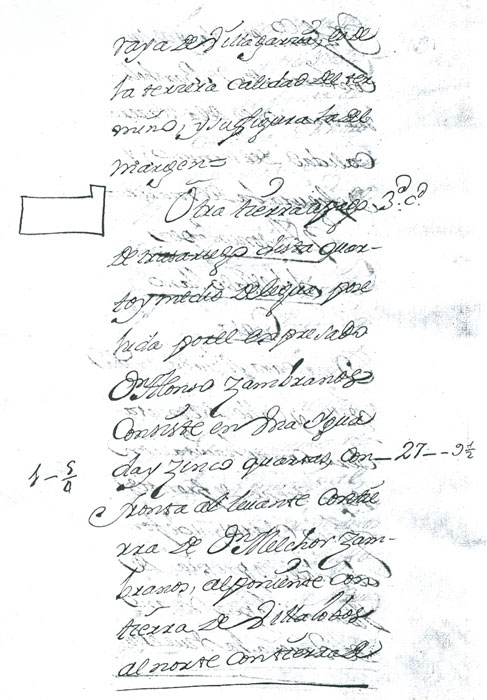 raya de Villagarzia, es de
la terzera calidad del ter
mino, y su figura la del
margen=
Otra tierra 3ª. cª.
de dista quar-
to y medio de legua, pose
hida por el expresado
Dn. Alonso Zambranos
Consiste en una Ygua
1-5/4 da y zinco quartas, con- 27--9 1/2
fronta al levante con tie
rra de Dn. Melchor Zam-
branos, al poniente con
tierra de Villalobos
al norte con tierra de